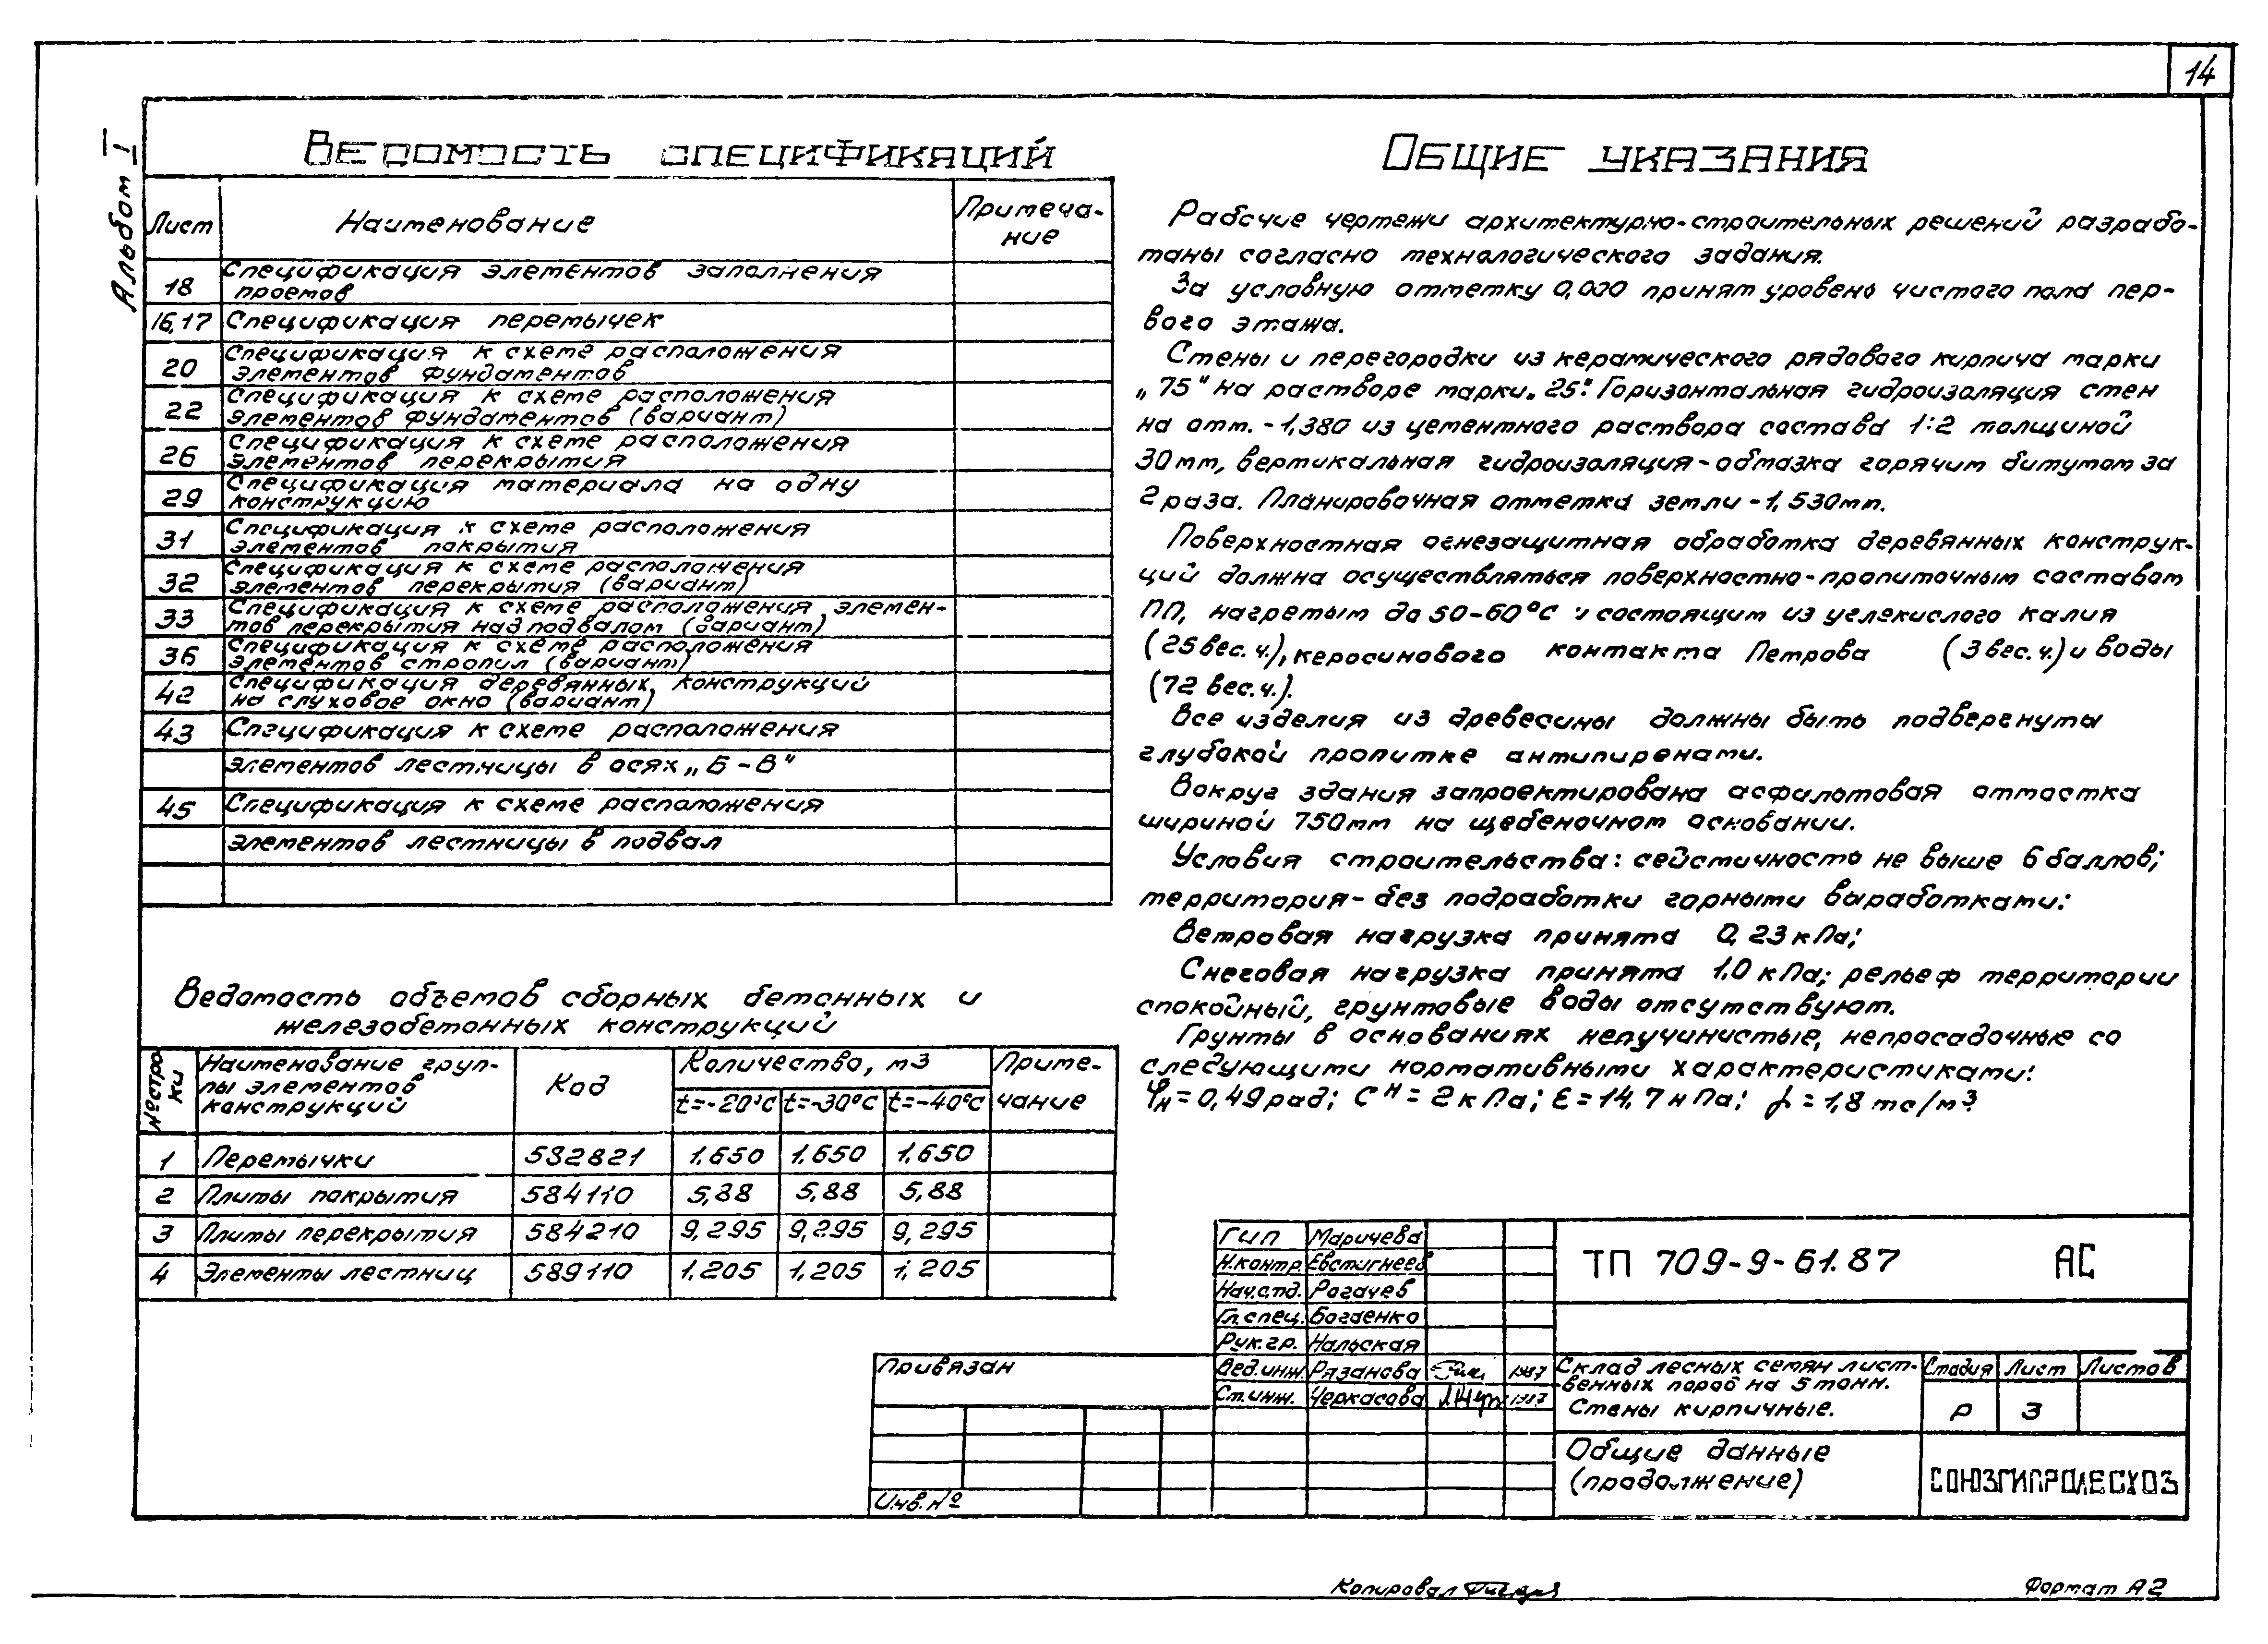 14
Альбом I
Ведомость спецификаций
Лист
Наименование
Примеча-
ние
18
Спецификация элементов заполнения
проемов
16,17
Спецификация перемычек
20
Спецификация к схеме расположения
элементов фундаментов
22
Спецификация к схеме расположения
элементов фундаментов (вариант)
26
Спецификация к схеме расположения
элементов перекрытия
29
Спецификация материала на одну
конструкцию
31
Спецификация к схеме расположения
элементов покрытия
32
Спецификация к схеме расположения
элементов перекрытия (вариант)
33
Спецификация к схеме расположения элемен-
тов перекрытия над подвалом (вариант)
36
Спецификация к схеме расположения
элементов стропил (вариант)
42
Спецификация деревянных конструкций
на слуховое окно (вариант)
43
Спецификация к схеме расположения
элементов лестницы в осях „Б-В"
45
Спецификация к схеме расположения
элементов лестницы в подвал
Ведомость объемов сборных бетонных и
железобетонных конструкций
№ стро
ки
Наименование груп-
пы элементов
конструкций
Код
Количество, м3
Приме-
чание
t=-20°С t=-30°С t=-40°С
1 Перемычки 582821 1.650 1.650 1.650
2 Плиты покрытия 584110 5,88 5,88 5,88
3 Плиты перекрытия 584210 9,295 9,295 9,295
4 Элементы лестниц 589110 1,205 1,205 1,205
Общие указания
Рабочие чертежи архитектурно-строительных решений разрабо-
таны согласно технологического задания.
За условную отметку 0,000 принят уровень чистого пола пер-
вого этажа.
Стены и перегородки из керамического рядового кирпича марки
„75" на растворе марки „25". Горизонтальная гидроизоляция стен
на отм. -1,380 из цементного раствора состава 1:2 толщиной
30мм, вертикальная гидроизоляция-обмазка горячим битумом за
2 раза. Планировочная отметка земли -1,530мм.
Поверхностная огнезащитная обработка деревянных конструк-
ций должна осуществляться поверхностно-пропиточным составом
ПП, нагретым до 50-60°С и состоящим из углекислого калия
(25вес.ч.), керосинового контакта Петрова (3вес.ч.) и воды
(72 вес.ч.).
Все изделия из древесины должны быть подвергнуты
глубокой пропитке антипиренами.
Вокруг здания запроектирована асфильтовая отмостка
шириной 750мм на щебеночном основании.
Условия строительства: сейсмичность не выше 6 баллов;
территория-без подработки горными выработками:
Ветровая нагрузка принята 0,23 кПа;
Снеговая нагрузка принята 1.0 кПа; рельеф территории
спокойный, грунтовые воды отсутствуют.
Грунты в основаниях непучинистые, непросадочные со
следующими нормативными характеристиками:
φн=0,49рад; Сн=2кПа; Е=14,7нПа; γ=1,8тс/м³
ГИП Маричева
Н.контр. Евстигнеев
Нач.отд. Рогачев
Гл.спец. Богаенко
Рук.гр. Нальская
Вед.инж. Рязанова 1987
Ст.инж. Черкасова 1987
ТП 709-9-61.87 АС
Склад лесных семян лист-
венных пород на 5 тонн.
Стены кирпичные.
Стадия Лист Листов
Р 3
Общие данные
(продолжение)
СОЮЗГИПРОЛЕСХОЗ
Привязан
Инв. №
Копировал
Формат А2